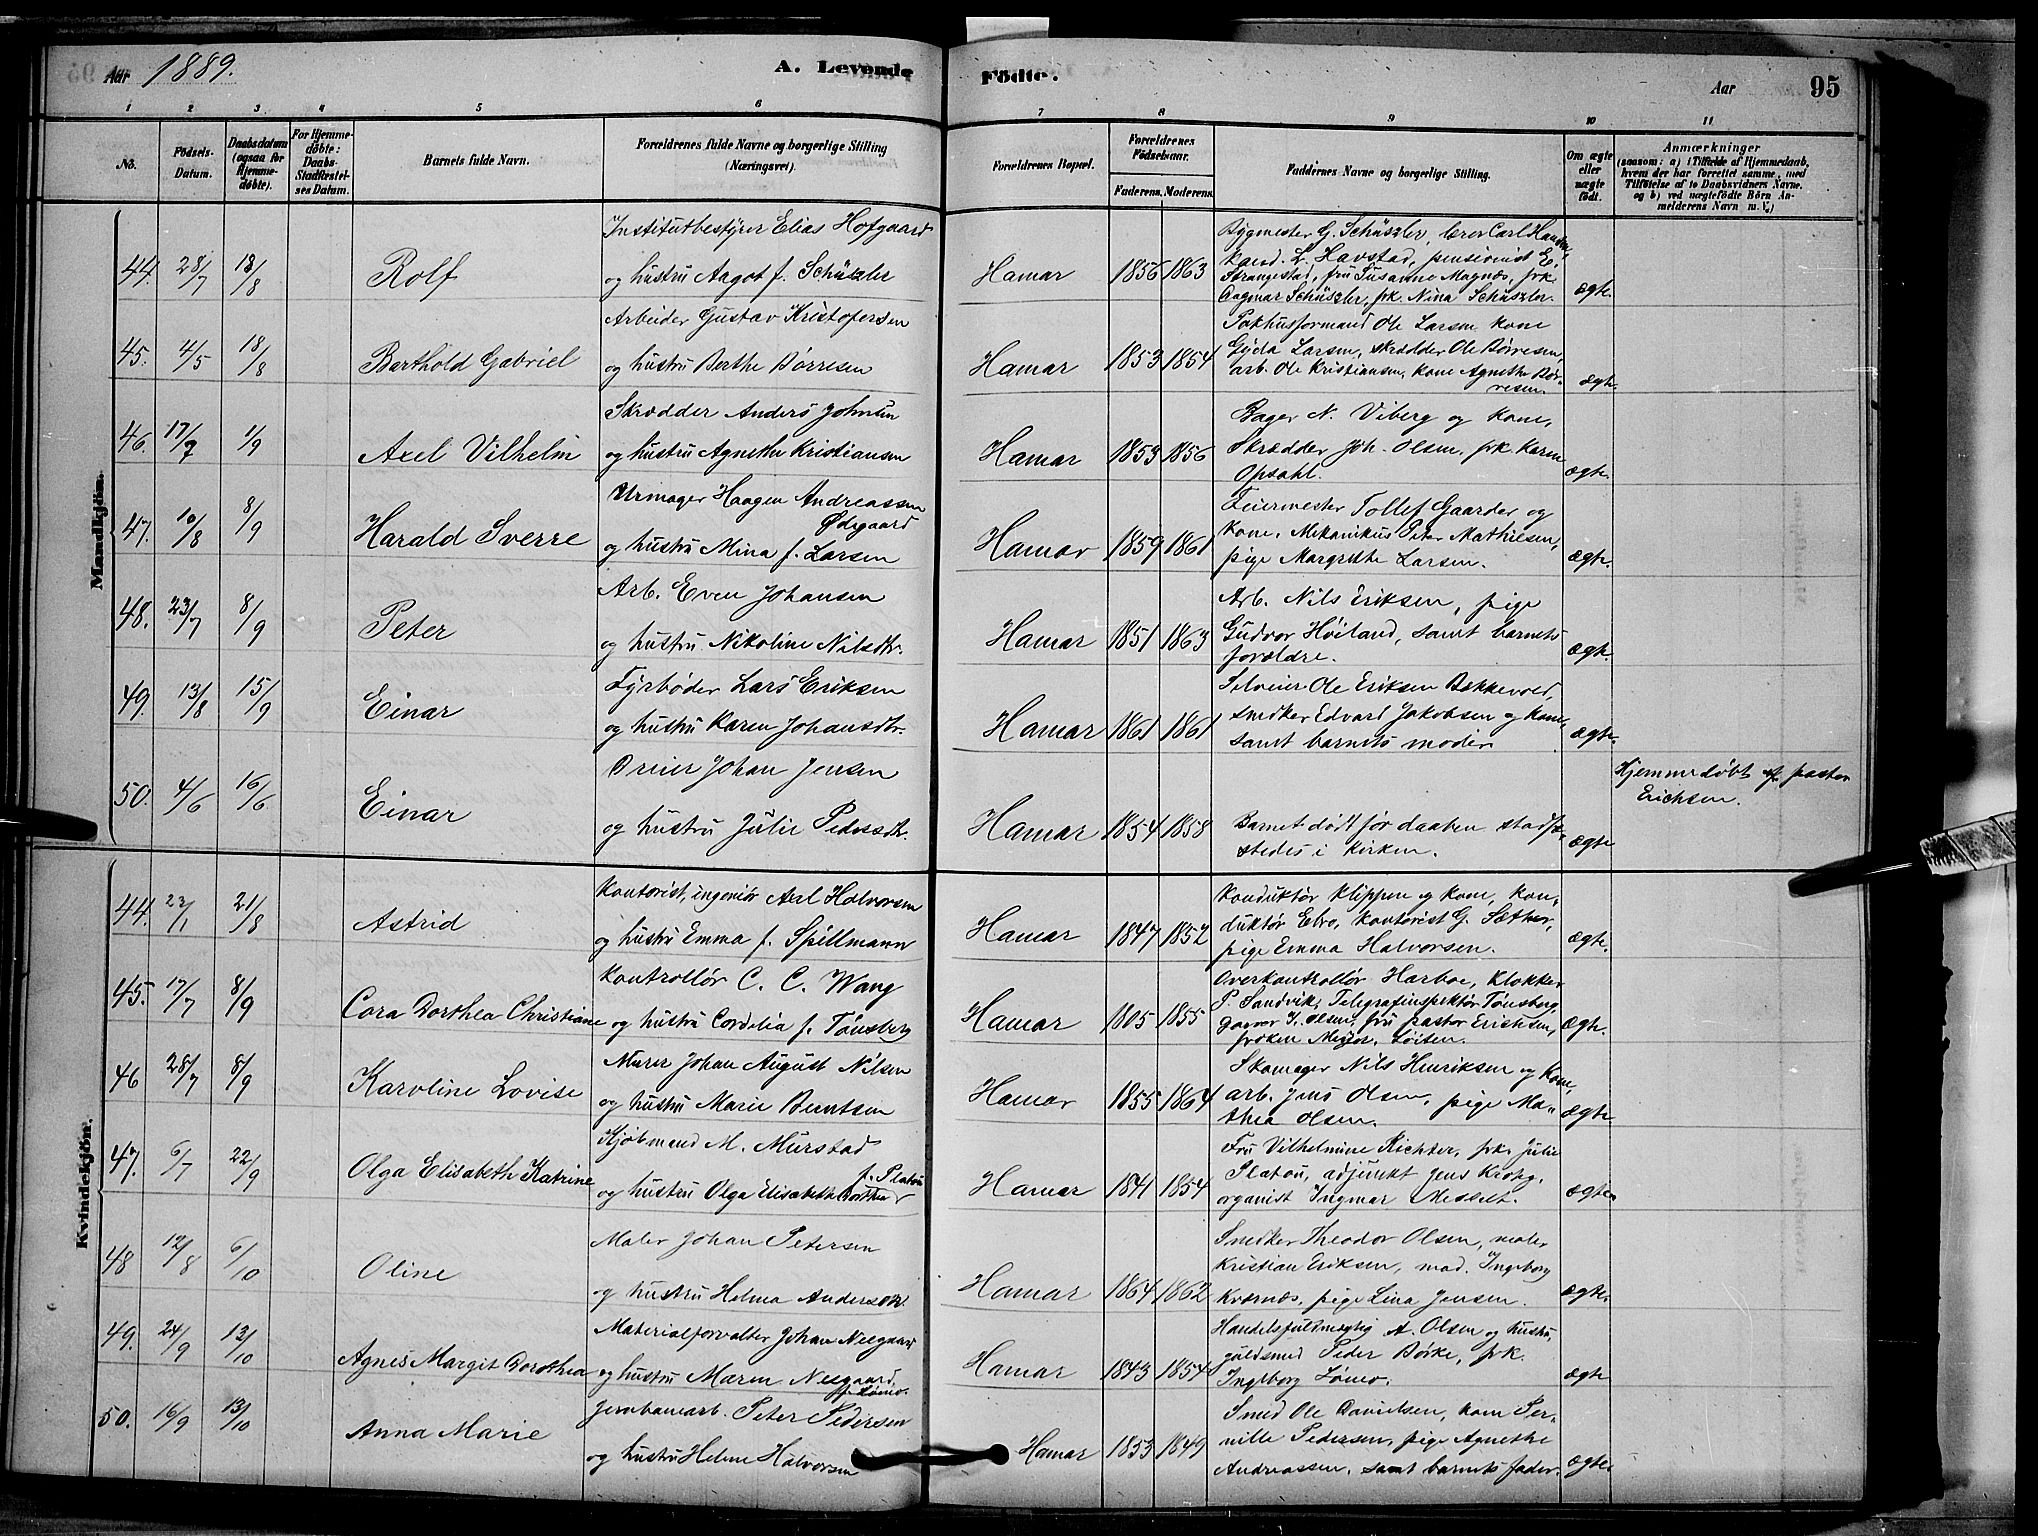 Aar 1889. A. Levende Födte. Aar 95
1 2 3 4 5 6 7 8 9 10 11
No.
Födsels-Datum.
Daabsdatum (ogsaa for Hjemme-döbte).
For Hjemme-döbte: Daabs-Stadfæstel-ses Datum.
Barnets fulde Navn.
Forældrenes fulde Navne og borgerlige Stilling (Næringsvei).
Forældrenes Bopæl.
Forældrenes Födselsaar.
Faderens. Moderens.
Faddernes Navne og borgerlige Stilling.
Om ægte eller uægte födt.
Anmærkninger
(saasom: a) i Tilfælde af Hjemmedaab,
hvem der har forrettet samme, med
Tilföielse af to Daabsvidners Navne.
og b) ved uægtefödte Börn An-
melderens Navn m. V.)
Mandkjön.
Institutbestyrer Elias Hofgaard
44. 28/7 18/8 Rolf og hustru Aagot f. Schüszler Hamar 1856 1863 ægte.
Bygmester G. Schüszler, lærer Carl Hansen,
kand. L. Havstad, pensionist E.
Strangestad, fru Susanne Magnæs, frk.
Dagmar Schüszler, frk. Nina Schüszler.
Arbeider Gustav Kristofersen
45. 4/5 18/8 Barthold Gabriel og hustru Berthe Börresen Hamar 1853 1854 ægte.
Pakhusformand Ole Larsen kone
Gyda Larsen, skrædder Ole Börresen,
arb. Ole Kristiansen, kone Agnethe Bör-
resen.
Skrædder Anders Johnsen
46. 17/7 1/9 Axel Vilhelm og hustru Agnethe Kristiansen Hamar 1853 1856 ægte.
Bager N. Viberg og kone,
Skrædder Joh. Olsen, frk. Karen
Opsahl.
Urmager Haagen Andreassen
Ødegaard
47. 10/8 8/9 Harald Sverre og hustru Mina f. Larsen Hamar 1859 1861 ægte.
Feiermester Tollef Gaarder og
kone, Mekanikus Peter Mathiesen,
pige Margrethe Larsen.
Arb. Even Johansen
48. 23/7 8/9 Peter og hustru Nikoline Nilsdtr. Hamar 1851 1863 ægte.
Arb. Nils Eriksen, pige
Gudvor Höiland, samt barnets
forældre.
Fyrböder Lars Eriksen
49. 13/8 15/9 Einar og hustru Karen Johansdtr. Hamar 1861 1861 ægte.
Selveier Ole Eriksen Bækkevold,
snedker Edvard Jakobsen og kone,
samt barnets moder.
Dreier Johan Jensen
50. 4/6 16/6 Einar og hustru Julie Pedersdtr. Hamar 1854 1858 ægte
Barnet dödt för daaben stadfæ-
stedes i kirken.
Hjemmedöbt af pastor
Erichsen.
Kvindekjön.
Kontorist, ingeniör Axl Halvorsen
44. 23/1 21/8 Astrid og hustru Emma f. Spillmann Hamar 1847 1852 ægte.
Konduktör Klippen og kone, kon-
duktör Ebro, kontorist G. Sæther,
pige Emma Halvorsen.
Kontrollör C. C. Wang
45. 17/7 8/9 Cora Dorthea Christiane og hustru Cordelia f. Tönsberg Hamar 1805 1855 ægte.
Overkontrollör Harboe, klokker
P. Sandvik, Telegrafinspektör Tönsberg,
garver K. Olsen, fru pastor Erichsen,
fröken Meyer, Löiten.
Murer Johan August Nilsen
46 28/7 8/9 Karoline Lovise og hustru Marie Berntsen Hamar 1855 1864 ægte
Skomager Nils Henriksen og kone,
arb. Jens Olsen, pige Ma-
thea Olsen.
Kjöbmand M. Mürstad
47. 6/7 22/9 Olga Elisabeth Katrine og hustru Olga Elisabeth Dorthea f. Platou Hamar 1841 1854 ægte
Fru Vilhelmine Richter, frk. Julie
Platou, adjunkt Jens Krohg,
organist Ingmar Messelt.
Maler Johan Petersen
48 12/8 6/10 Oline og hustru Helma Andersdtr. Hamar 1864 1862 ægte.
Snedker Theodor Olsen, maler
Kristian Eriksen, mad. Ingeborg
Kværnæs, pige Lina Jensen.
Materialforvalter Johan Neegaard
49. 24/9 13/10 Agnes Margit Dorothea og hustru Maren Neegaard Hamar 1843 1854 ægte
Handelsfuldmægtig A. Olsen og hustru,
guldsmed Peder Börke, frk.
Ingeborg Lömo.
f. Lömo.
Jernbanearb. Peter Pedersen
50. 16/9 13/10 Anna Marie og hustru Helene Halvorsen Hamar 1853 1849 ægte.
Smed Ole Danielsen, kone Per-
nille Pedersen, pige Agnethe
Andreassen, samt barnets fader.